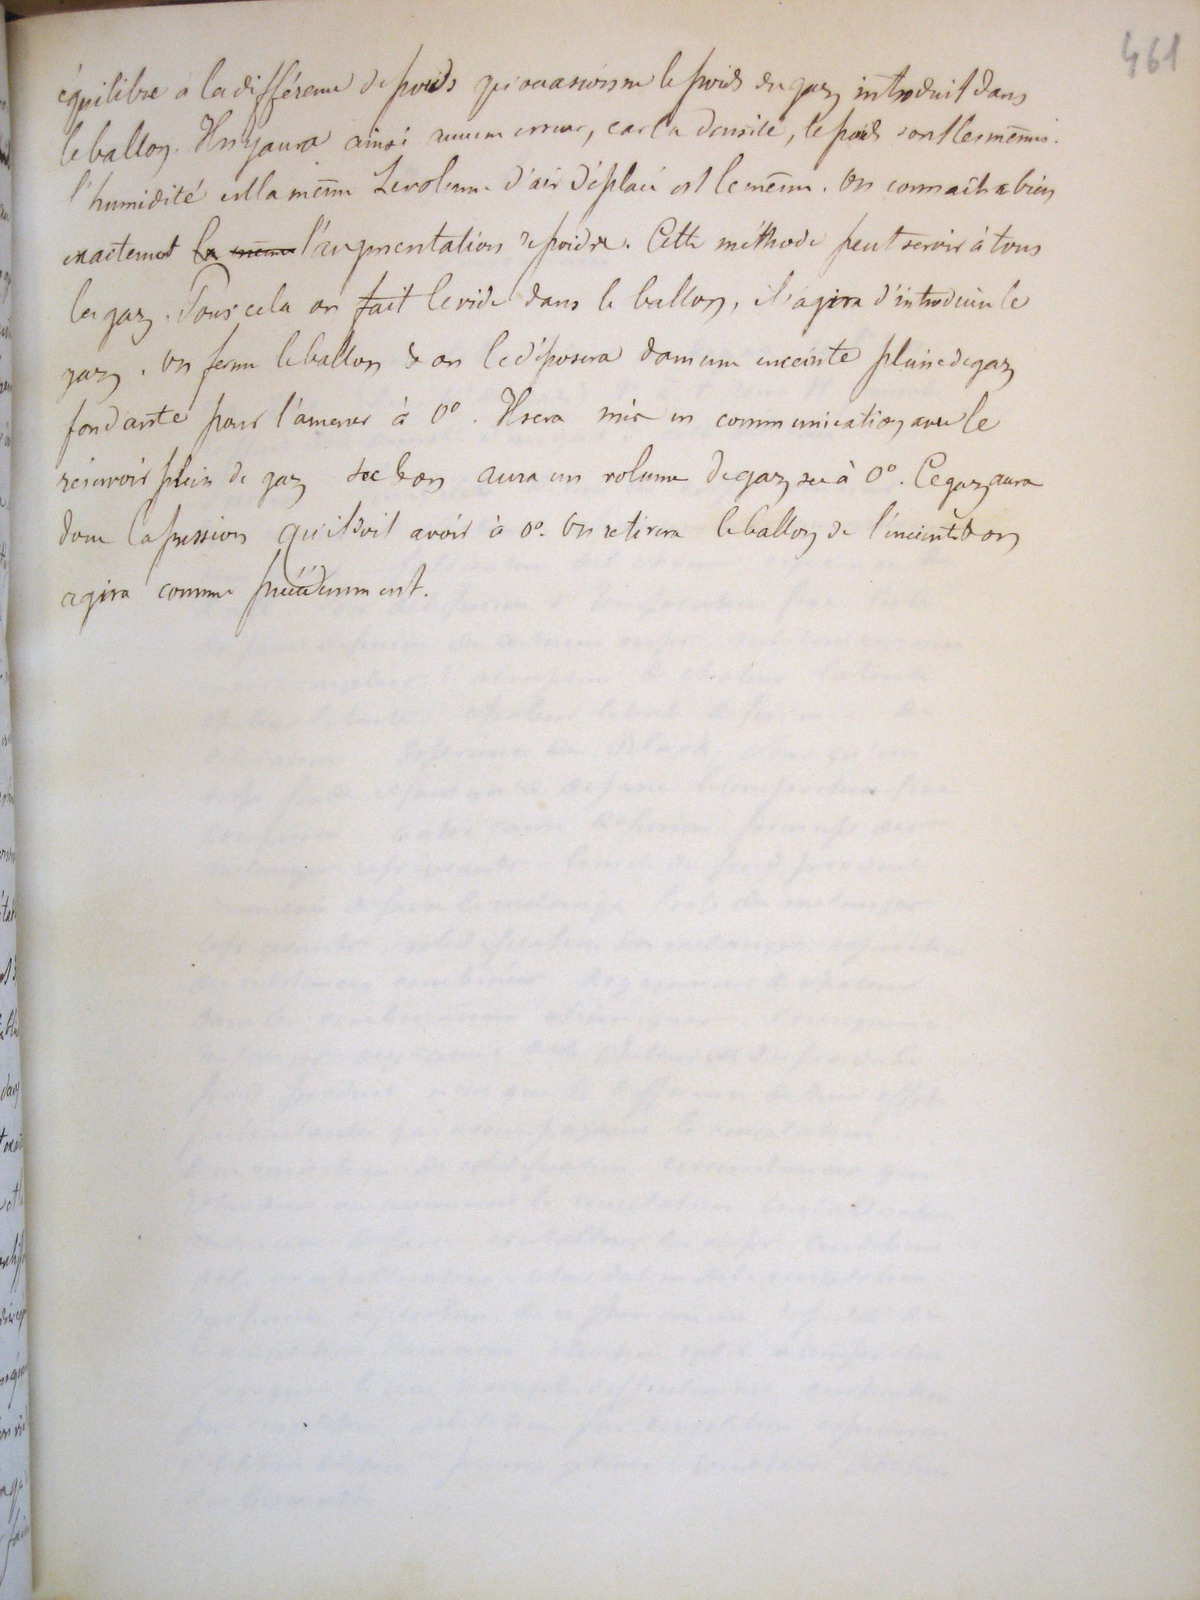 461
équilibre à la différence de poids qu'occasionne le poids du gaz introduit dans
le ballon. Il n'y aura ainsi aucune erreur, car la densité, le poids sont les mêmes.
l'humidité est la même Le volume d'air déplacé est le même. On connaîtra bien
exactement la même l'augmentation de poids. Cette méthode peut servir à tous
les gaz. Pour cela on fait le vide dans le ballon, il s'agira d'introduire le
gaz. On ferme le ballon & on le déposera dans une enceinte pleine de gaz
fondante pour l'amener à 0°. Il sera mis en communication avec le
réservoir plein de gaz sec & on aura un volume de gaz sec à 0°. Ce gaz aura
donc la pression qu'il doit avoir à 0°. On retirera le ballon de l'enceinte & on
agira comme précédemment.